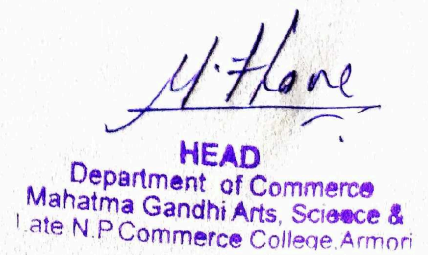 HEAD
Department of Commerce
Mahatma Gandhi Arts, Science &
Late N.P Commerce College, Armori